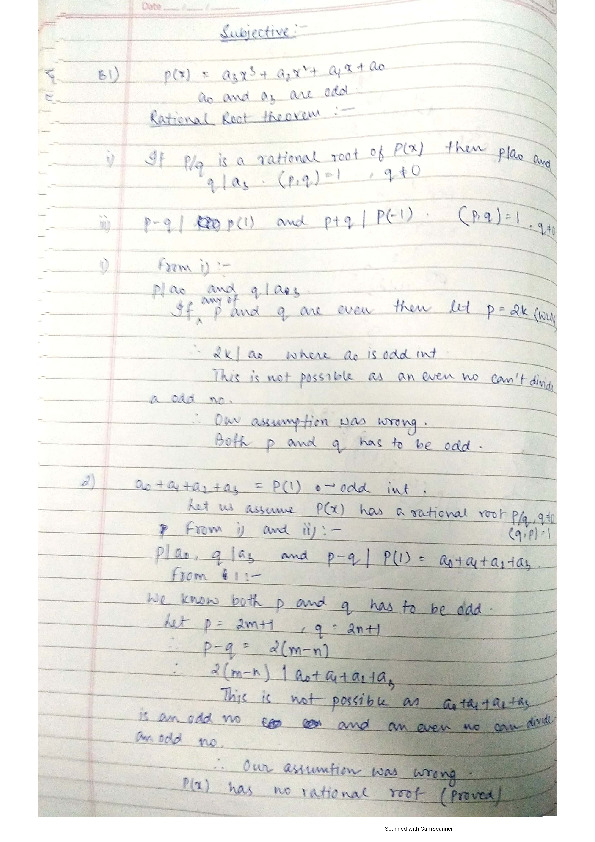 Date
Subjective :-
B1) p(x) = a₃x³ + a₂x² + a₁x + a₀
a₀ and a₃ are odd
Rational Root theorem :-
i) If P/q is a rational root of P(x) then p|a₀ and
q|a₃ . (p,q)=1 , q≠0
ii) p-q | p(1) and p+q | P(-1) . (p,q)=1 , q≠0
1) From i) :-
p|a₀ and q|a₃
If any of p and q are even then let p = 2k
∴ 2k | a₀ where a₀ is odd int
This is not possible as an even no can't divide
a odd no.
∴ Our assumption was wrong.
Both p and q has to be odd.
2) a₀+a₁+a₂+a₃ = P(1) → odd int.
Let us assume P(x) has a rational root P/q, q≠0
(q,p)=1
From i) and ii) :-
p|a₀, q|a₃ and p-q | P(1) = a₀+a₁+a₂+a₃.
From 1 :-
We know both p and q has to be odd.
Let p = 2m+1 , q = 2n+1
∴ p-q = 2(m-n)
∴ 2(m-n) | a₀+a₁+a₂+a₃
This is not possible as a₀+a₁+a₂+a₃
is an odd no and an even no can divide
an odd no.
∴ Our assumtion was wrong.
P(x) has no rational root (Proved)
Scanned with CamScanner